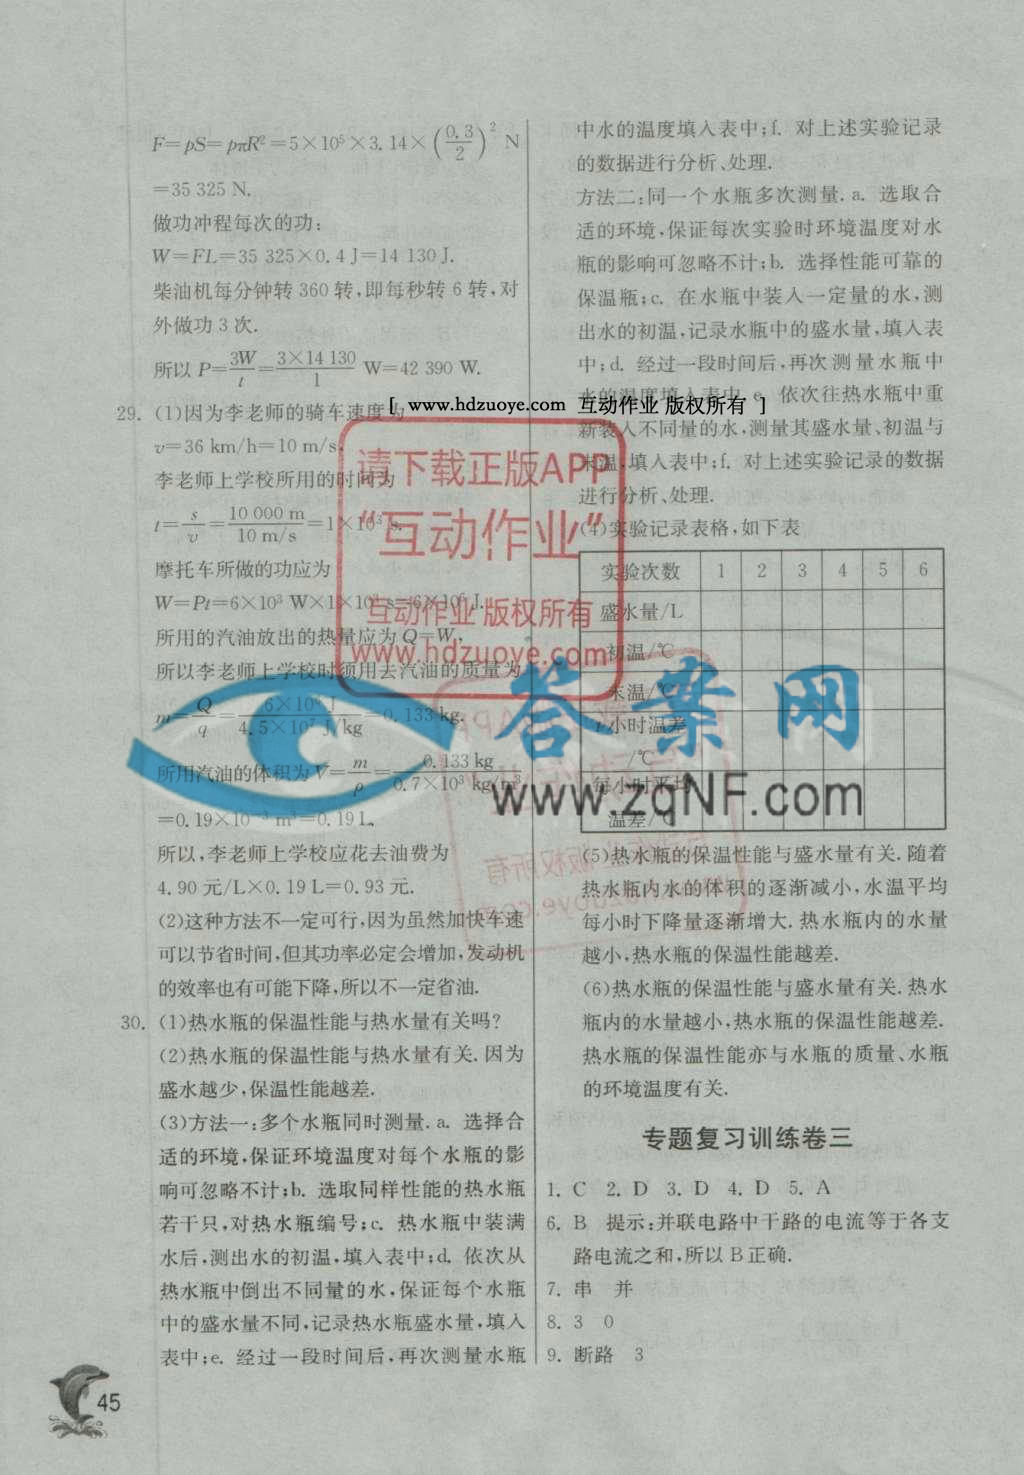 F=pS=pπR²=5×10⁵×3.14×(0.3/2)² N
=35 325 N.
做功冲程每次的功:
W=FL=35 325×0.4 J=14 130 J.
柴油机每分钟转 360 转,即每秒转 6 转,对
外做功 3 次.
所以 P=3W/t=3×14 130/1 W=42 390 W.
29. (1)因为李老师的骑车速度为
v=36 km/h=10 m/s,
李老师上学校所用的时间为
t=s/v=10 000 m/10 m/s=1×10³ s.
摩托车所做的功应为
W=Pt=6×10³ W×1×10³ s=6×10⁶ J.
所用的汽油放出的热量应为 Q=W,
所以李老师上学校时须用去汽油的质量为
m=Q/q=6×10⁶ J/4.5×10⁷ J/kg=0.133 kg.
所用汽油的体积为 V=m/ρ=0.133 kg/0.7×10³ kg/m³
=0.19×10⁻³ m³=0.19 L,
所以,李老师上学校应花去油费为
4.90 元/L×0.19 L=0.93 元.
(2)这种方法不一定可行,因为虽然加快车速
可以节省时间,但其功率必定会增加,发动机
的效率也有可能下降,所以不一定省油.
30. (1)热水瓶的保温性能与热水量有关吗?
(2)热水瓶的保温性能与热水量有关. 因为
盛水越少,保温性能越差.
(3)方法一:多个水瓶同时测量. a. 选择合
适的环境,保证环境温度对每个水瓶的影
响可忽略不计;b. 选取同样性能的热水瓶
若干只,对热水瓶编号;c. 热水瓶中装满
水后,测出水的初温,填入表中;d. 依次从
热水瓶中倒出不同量的水,保证每个水瓶
中的盛水量不同,记录热水瓶盛水量,填入
表中;e. 经过一段时间后,再次测量水瓶
中水的温度填入表中;f. 对上述实验记录
的数据进行分析、处理.
方法二:同一个水瓶多次测量. a. 选取合
适的环境,保证每次实验时环境温度对水
瓶的影响可忽略不计;b. 选择性能可靠的
保温瓶;c. 在水瓶中装入一定量的水,测
出水的初温,记录水瓶中的盛水量,填入表
中;d. 经过一段时间后,再次测量水瓶中
水的温度填入表中 e. 依次往热水瓶中重
新装入不同量的水,测量其盛水量、初温与
末温,填入表中;f. 对上述实验记录的数据
进行分析、处理.
(4)实验记录表格,如下表
实验次数 1 2 3 4 5 6
盛水量/L
初温/℃
末温/℃
小时温差
/℃
每小时平均
温差/℃
(5)热水瓶的保温性能与盛水量有关. 随着
热水瓶内水的体积的逐渐减小,水温平均
每小时下降量逐渐增大. 热水瓶内的水量
越小,热水瓶的保温性能越差.
(6)热水瓶的保温性能与盛水量有关. 热水
瓶内的水量越小,热水瓶的保温性能越差.
热水瓶的保温性能亦与水瓶的质量、水瓶
的环境温度有关.
专题复习训练卷三
1. C 2. D 3. D 4. D 5. A
6. B 提示:并联电路中干路的电流等于各支
路电流之和,所以 B 正确.
7. 串 并
8. 3 0
9. 断路 3
45
[ www.hdzuoye.com 互动作业 版权所有 ]
请下载正版APP
“互动作业”
互动作业 版权所有
www.hdzuoye.com
答案网
www.zqNF.com